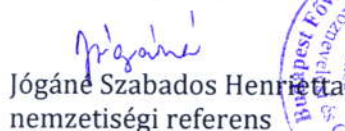 Jógáné
Jógáné Szabados Henrietta
nemzetiségi referens
Budapest Főv